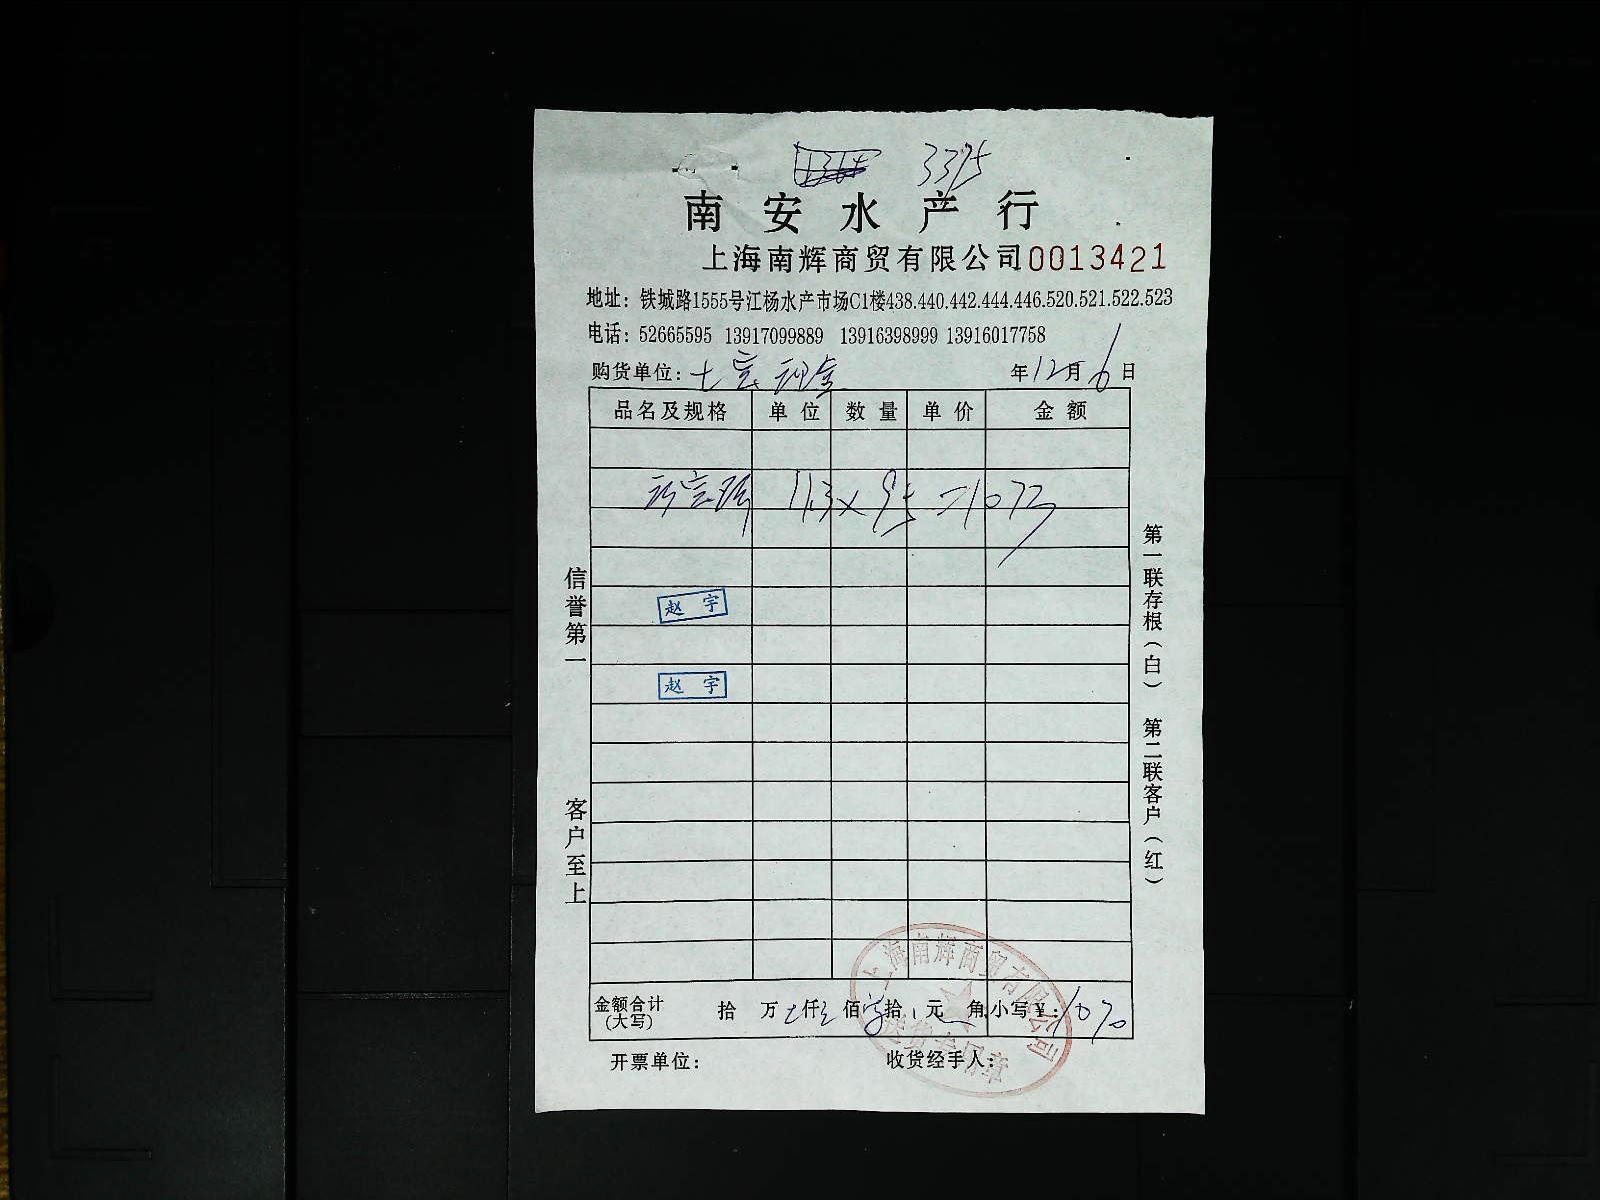 3375
南安水产行
上海南辉商贸有限公司0013421
地址：铁城路1555号江杨水产市场C1楼438.440.442.444.446.520.521.522.523
电话：52665595 13917099889 13916398999 13916017758
购货单位： 年12月6日
品名及规格 单位 数量 单价 金额
11.3×95=1073
赵宇
赵宇
信誉第一
客户至上
第一联存根（白） 第二联客户（红）
金额合计（大写） 拾 万 仟 佰 拾 元 角 小写¥：1070
开票单位： 收货经手人：
上海南辉商贸有限公司
送货专用章